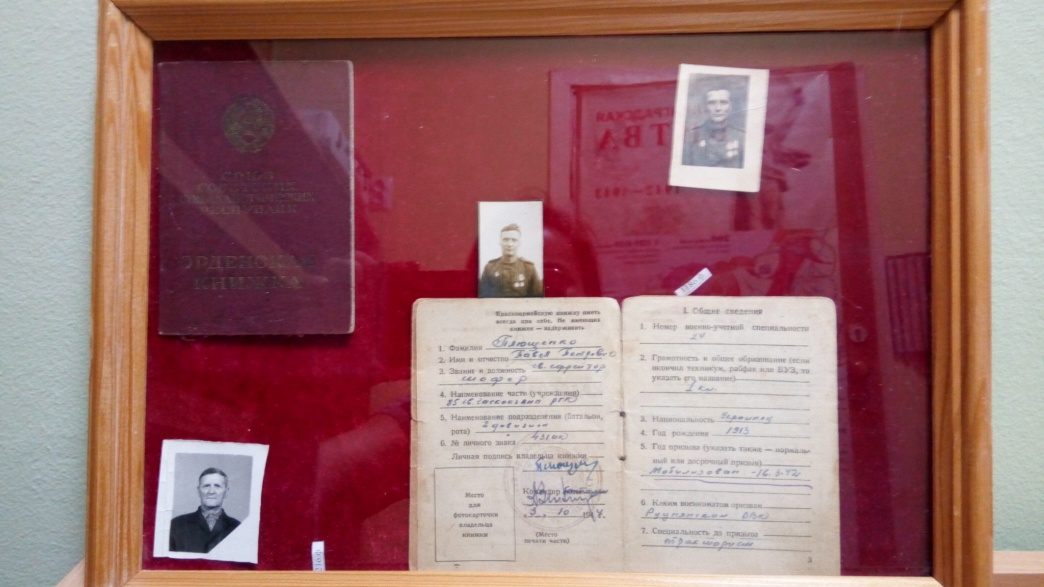 СОЮЗ
СОВЕТСКИХ
СОЦИАЛИСТИЧЕСКИХ
РЕСПУБЛИК
ОРДЕНСКАЯ
КНИЖКА
1942–1943
Красноармейскую книжку иметь
всегда при себе. Не имеющих
книжек — задерживать
1. Фамилия
2. Имя и отчество Павел Петрович
3. Звание и должность гв. ефрейтор
шофер
4. Наименование части (учреждения)
5. Наименование подразделения (батальон,
рота) 2 дивизион
6. № личного знака
Личная подпись владельца книжки
Командир
3. 10 1944.
Место
для
фотокарточки
владельца
книжки
(Место
печати части)
I. Общие сведения
1. Номер военно-учетной специальности
24
2. Грамотность и общее образование (если
окончил техникум, рабфак или ВУЗ, то
указать его название)
кл.
3. Национальность Украинец
4. Год рождения 1913
5. Год призыва (указать какие — нормаль-
ный или досрочный призыв)
Мобилизован
6. Каким военкоматом призван
Руднянским РВК
7. Специальность до призыва
3